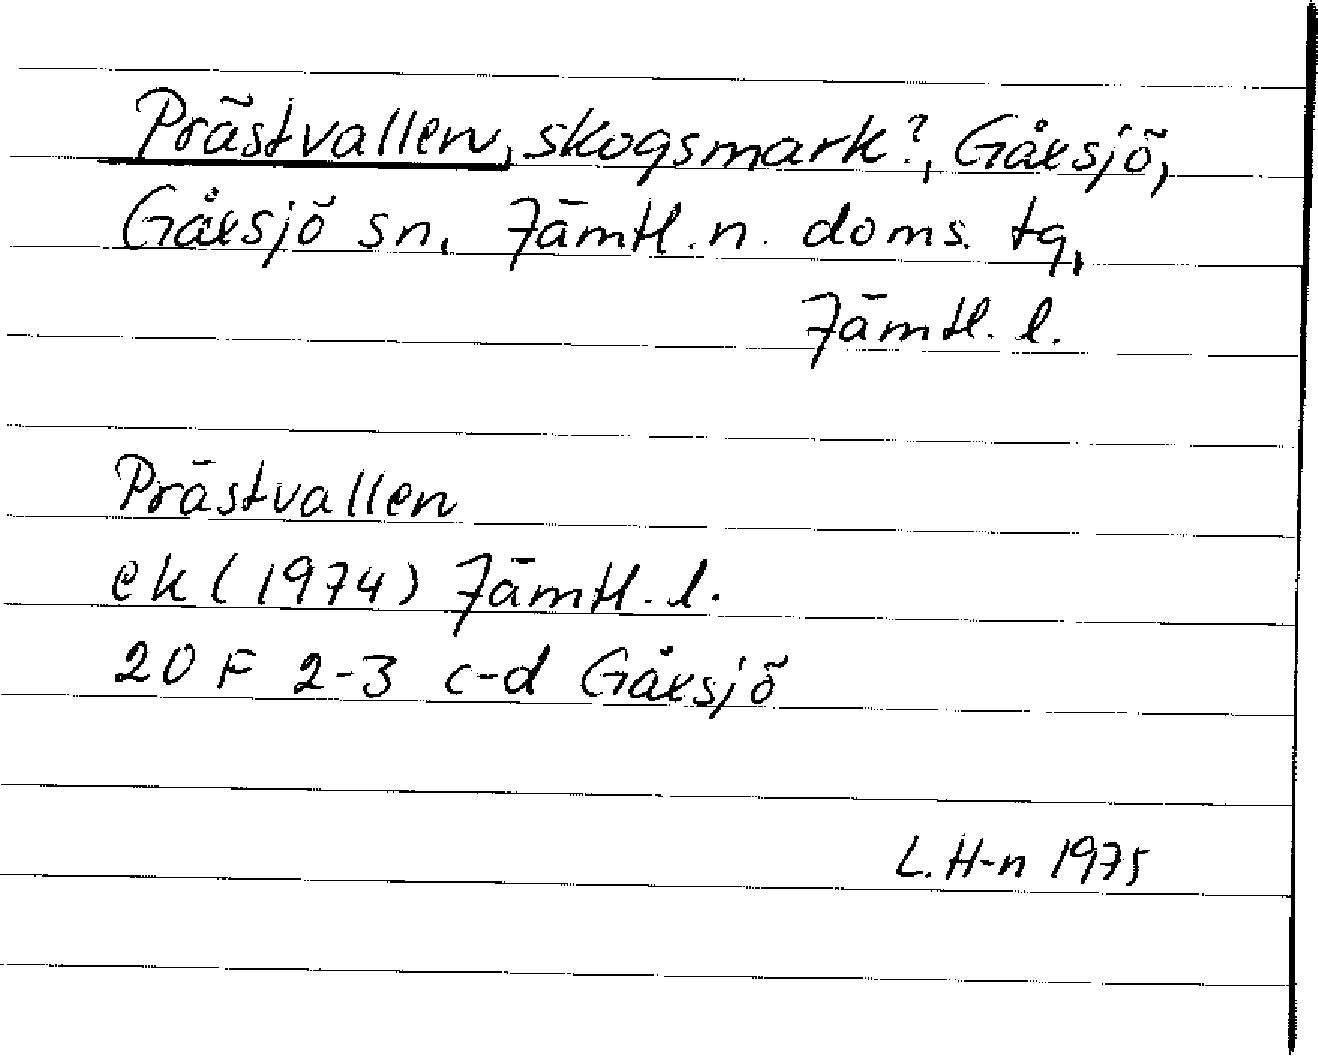 Prästvallen, skogsmark?, Gåxsjö,
Gåxsjö sn, Jämtl. n. doms. tg,
Jämtl. l.
Prästvallen
ek (1974) Jämtl. l.
20 F 2-3 c-d Gåxsjö
L. H-n 1975